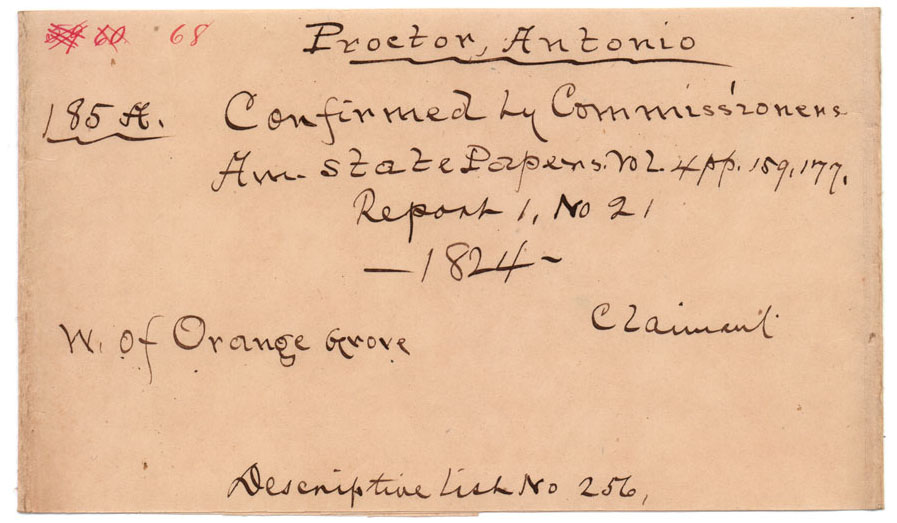 60 68
Proctor, Antonio
185 A. Confirmed by Commissioners
Am. State Papers. Vol. 4 pp. 159, 177.
Report 1, No 21
— 1824 -
Claimant
W. of Orange Grove
Descriptive List No 256,